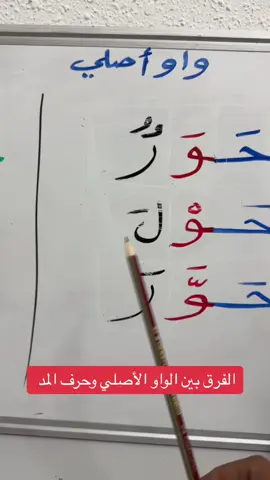 واو أصلي
حَوَرٌ
حَوْلَ
حَوَّرَ
الفرق بين الواو الأصلي وحرف المد